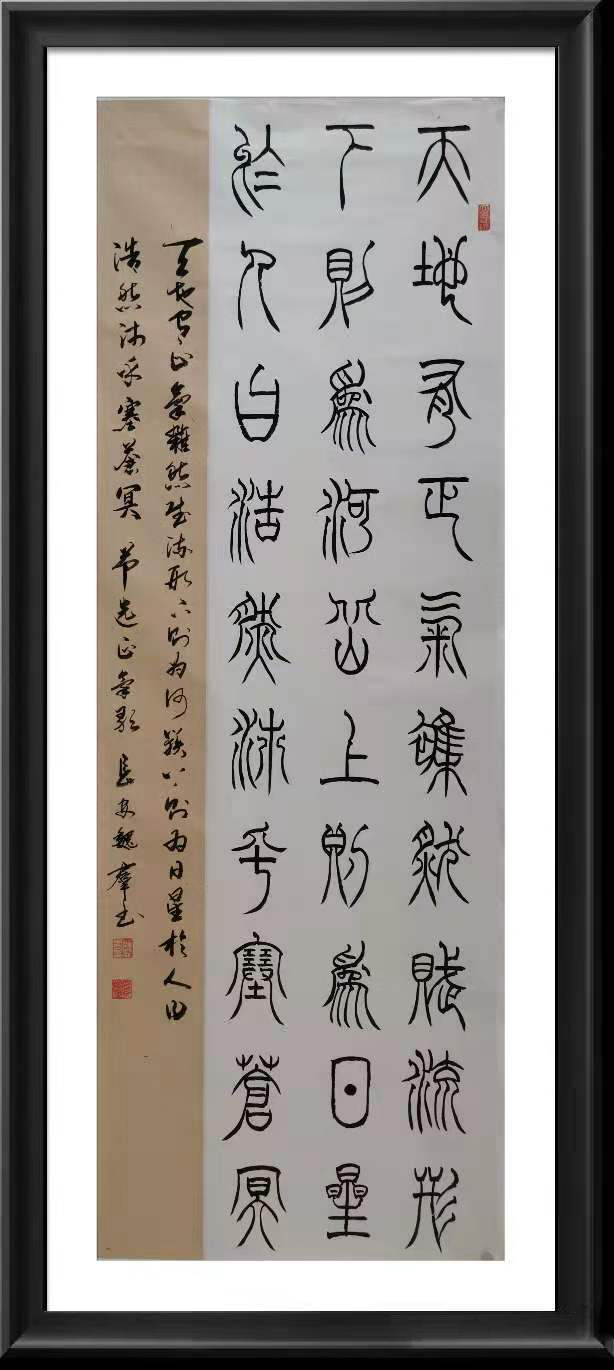 天地有正氣雜然賦流形
下則爲河岳上則爲日星
於人曰浩然沛乎塞蒼冥
天地有正氣雜然賦流形下則为河嶽上則为日星於人曰
浩然沛乎塞蒼冥 节选正氣歌 長安魏群书